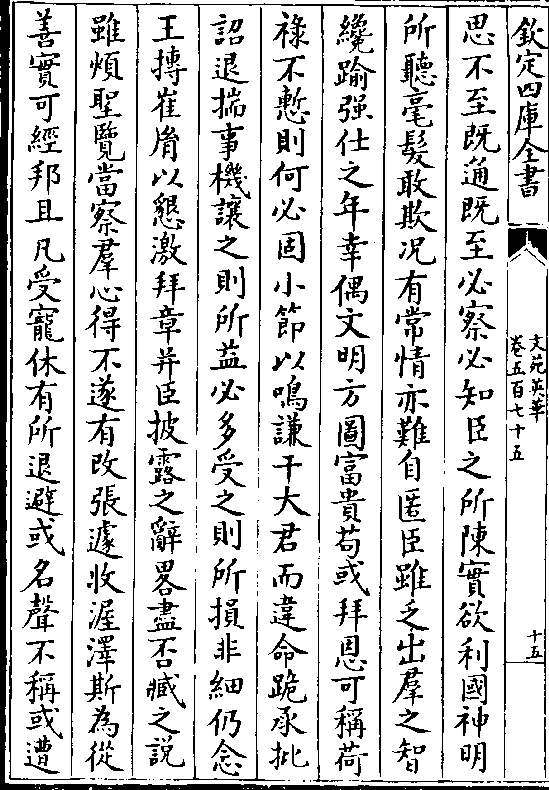 欽定四庫全書
文苑英華
卷五百七十五
十五
思不至既通既至必察必知臣之所陳實欲利國神明
所聽毫髮敢欺况有常情亦難自匿臣雖乏出羣之智
纔踰强仕之年幸偶文明方圖富貴苟或拜恩可稱荷
祿不慙則何必固小節以鳴謙干大君而違命跪承批
詔退揣事機讓之則所益必多受之則所損非細仍念
王摶崔胤以懇激拜章并臣披露之辭畧盡否臧之説
雖煩聖覽當察羣心得不遂有改張遽收渥澤斯為從
善實可經邦且凡受寵休有所退避或名聲不稱或遭